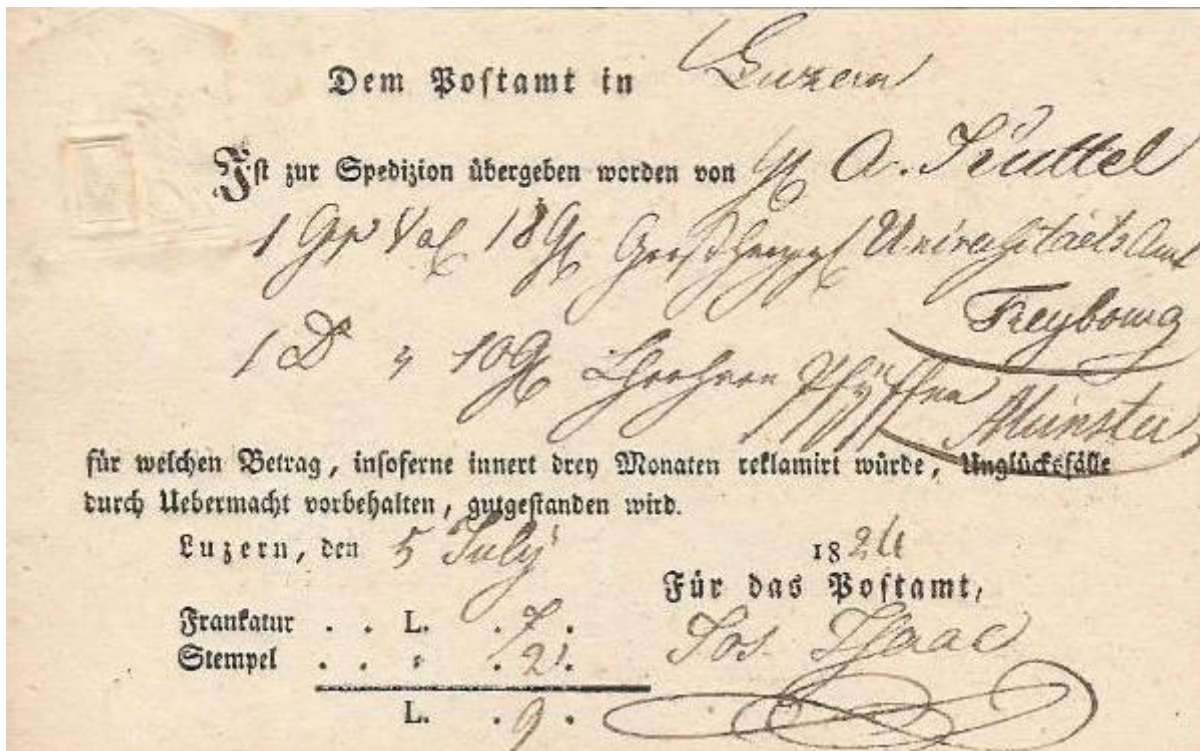 Dem Postamt in Luzern
Ist zur Spedizion übergeben worden von A. Küttel
1 18 Universitäts Amt
Freybourg
1 Do " 10 Chorherrn Pfÿffer
Münster
für welchen Betrag, insoferne innert drey Monaten reklamirt würde, Unglücksfälle
durch Uebermacht vorbehalten, gutgestanden wird.
Luzern, den 5 July 1824
Für das Postamt,
Frankatur . . L. . 7 .
Jos. Isaac
Stempel . . " . 2 .
L. . 9 .